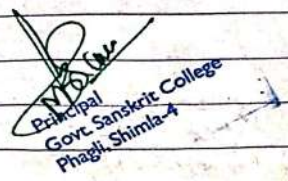 Principal
Govt. Sanskrit College
Phagli, Shimla-4